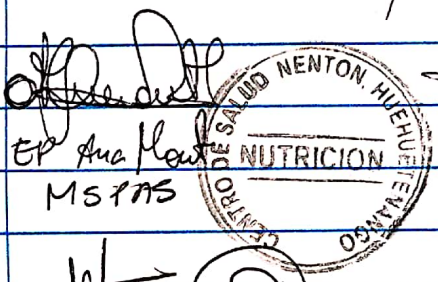 EP Ana Mont
MSPAS
CENTRO DE SALUD NENTON, HUEHUETENANGO
NUTRICION